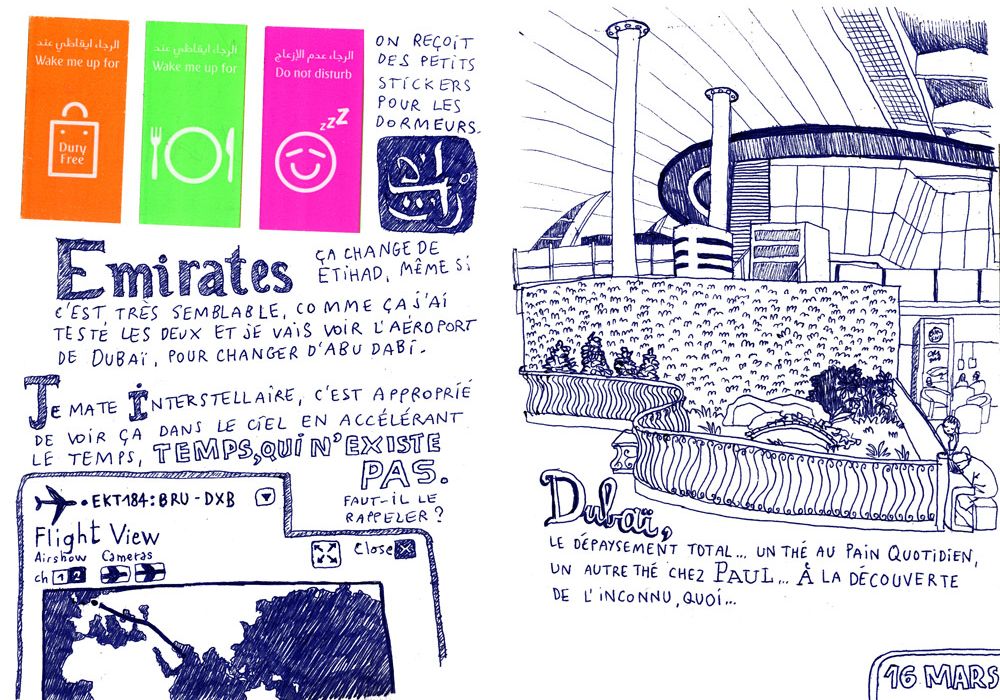 الرجاء ايقاظي عند
Wake me up for
Duty
Free
الرجاء ايقاظي عند
Wake me up for
الرجاء عدم الإزعاج
Do not disturb
zzZ
ON REÇOIT
DES PETITS
STICKERS
POUR LES
DORMEURS.
Emirates
ÇA CHANGE DE
ETIHAD, MÊME SI
C'EST TRÈS SEMBLABLE, COMME ÇA J'AI
TESTÉ LES DEUX ET JE VAIS VOIR L'AÉROPORT
DE DUBAÏ, POUR CHANGER D'ABU DABI.
JE MATE INTERSTELLAIRE, C'EST APPROPRIÉ
DE VOIR ÇA DANS LE CIEL EN ACCÉLÉRANT
LE TEMPS, TEMPS, QUI N'EXISTE
PAS.
FAUT-IL LE
RAPPELER ?
EKT184: BRU - DXB
Flight View
Airshow Cameras
ch 1 2
Close X
Dubaï,
LE DÉPAYSEMENT TOTAL... UN THÉ AU PAIN QUOTIDIEN,
UN AUTRE THÉ CHEZ PAUL... À LA DÉCOUVERTE
DE L'INCONNU, QUOI...
16 MARS